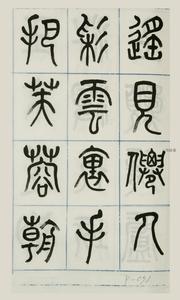 遙見僊人
彩雲裏手
把芙蓉朝